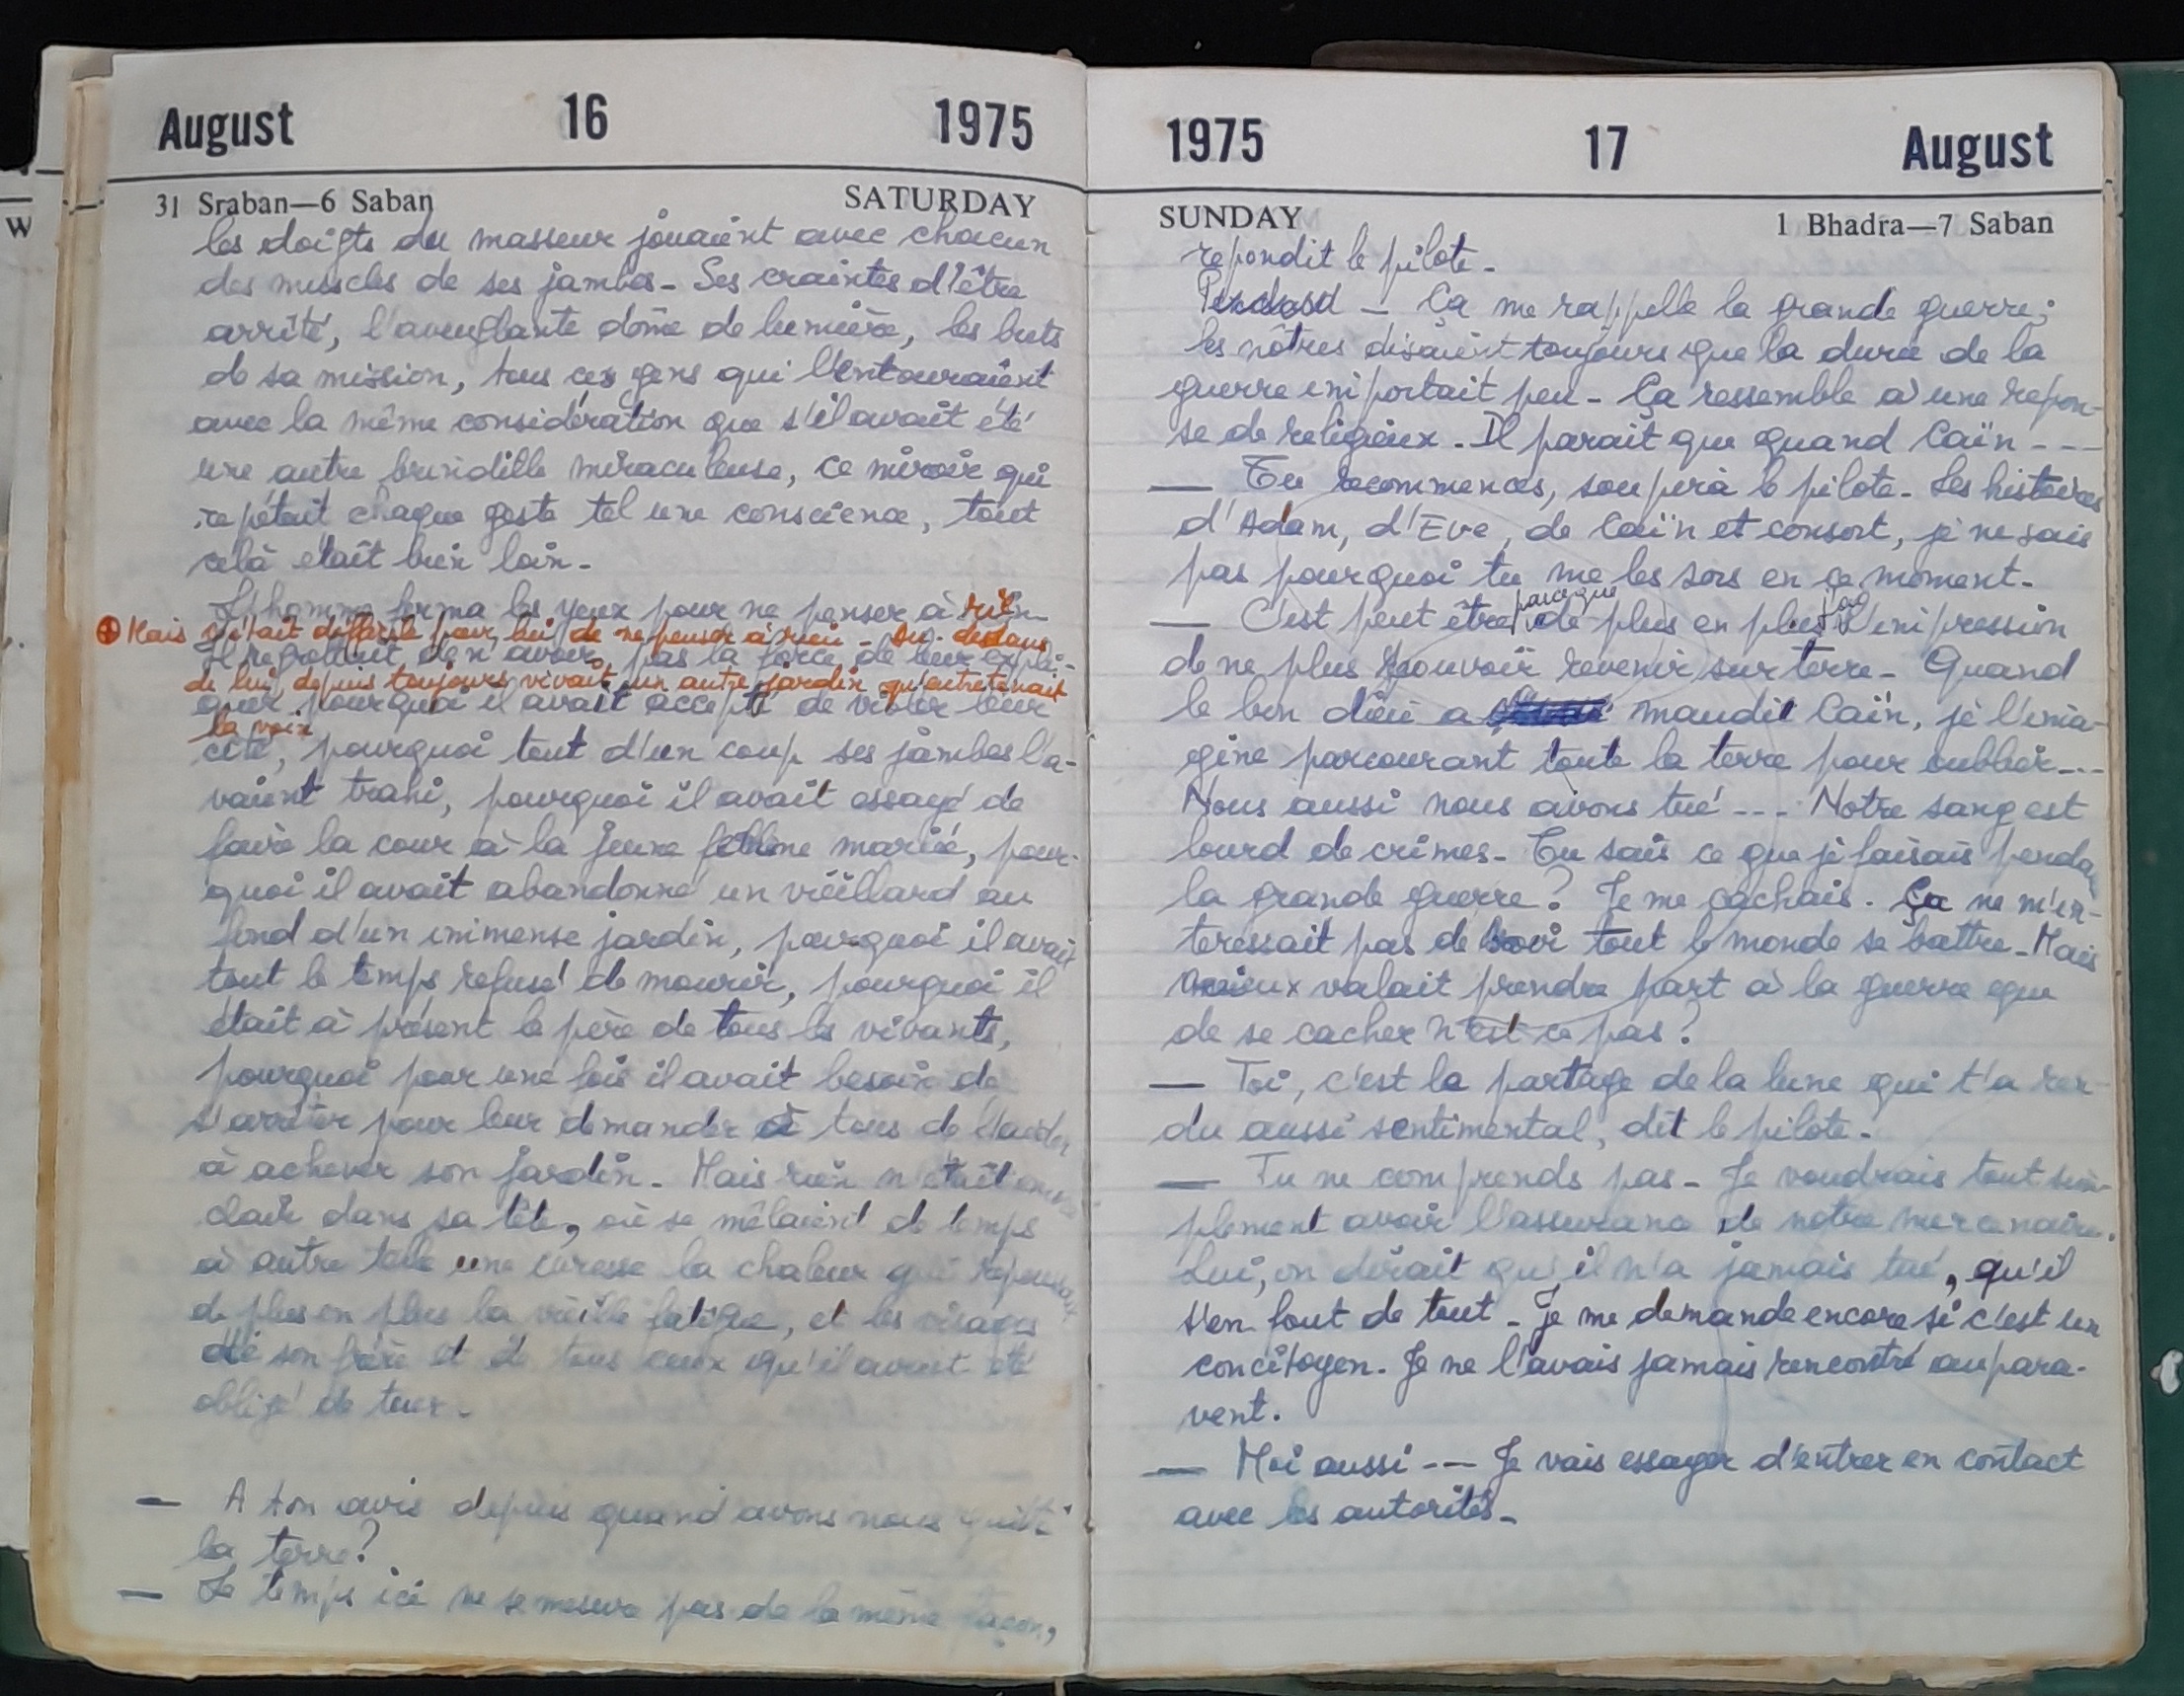 August 16 1975
31 Sraban—6 Saban SATURDAY
les doigts du masseur jouaient avec chacun
des muscles de ses jambes - Ses craintes d'être
arrêté, l'aveuglante dôme de lumière, les buts
de sa mission, tous ces gens qui l'entouraient
avec la même considération que s'il avait été
une autre brindille miraculeuse, ce miroir qui
repétait chaque geste tel une conscience, tout
celà était bien loin -
L'homme ferma les yeux pour ne penser à rien
Mais c'était difficile pour lui de ne penser à rien - Au-dedans
Il regrettait de n'avoir pas la force de leur expli-
de lui, depuis toujours vivait un autre jardin qu'entretenait
quer pourquoi il avait accepté de violer leur
la voix
cité, pourquoi tout d'un coup ses jambes l'a-
vaient trahi, pourquoi il avait essayé de
faire la cour à la jeune femme mariée, pour-
quoi il avait abandonné un vieillard au
fond d'un immense jardin, pourquoi il avait
tout le temps refusé de mourir, pourquoi il
était à présent le père de tous les vivants,
pourquoi pour une fois il avait besoin de
s'arrêter pour leur demander à tous de l'aider
à achever son jardin - Mais rien n'était
clair dans sa tête, où se mêlaient de temps
à autre telle une caresse la chaleur qui
de plus en plus la vieille fatigue, et les visages
de son frère et de tous ceux qu'il avait été
obligé de tuer -
— A ton avis depuis quand avons nous quitté
la terre?
— Le temps ici ne se mesure pas de la même façon,
1975 17 August
SUNDAY 1 Bhadra—7 Saban
repondit le pilote -
— Ça me rappelle la grande guerre;
les nôtres disaient toujours que la durée de la
guerre importait peu - Ça ressemble à une repon-
se de religieux - Il parait que quand Caïn ---
— Tu recommences, soupira le pilote - Les histoires
d'Adam, d'Eve, de Caïn et consort, je ne sais
pas pourquoi tu me les sors en ce moment -
— C'est peut être parceque de plus en plus j'ai l'impression
de ne plus pouvoir revenir sur terre - Quand
le bon dieu a maudit Caïn, je l'ima-
gine parcourant toute la terre pour oublier ---
Nous aussi nous avons tué --- Notre sang est
lourd de crimes - Tu sais ce que je faisais pendant
la grande guerre? Je me cachais. Ça ne m'in-
teressait pas de voir tout le monde se battre - Mais
mieux valait prendre part à la guerre que
de se cacher n'est ce pas?
— Toi, c'est le partage de la lune qui t'a ren-
du aussi sentimental, dit le pilote -
— Tu ne comprends pas - Je voudrais tout sim-
plement avoir l'assurance de notre mercenaire.
Lui, on dirait qu'il n'a jamais tué, qu'il
s'en fout de tout - Je me demande encore si c'est un
concitoyen. Je ne l'avais jamais rencontré aupara-
vent.
— Moi aussi --- Je vais essayer d'entrer en contact
avec les autorités -